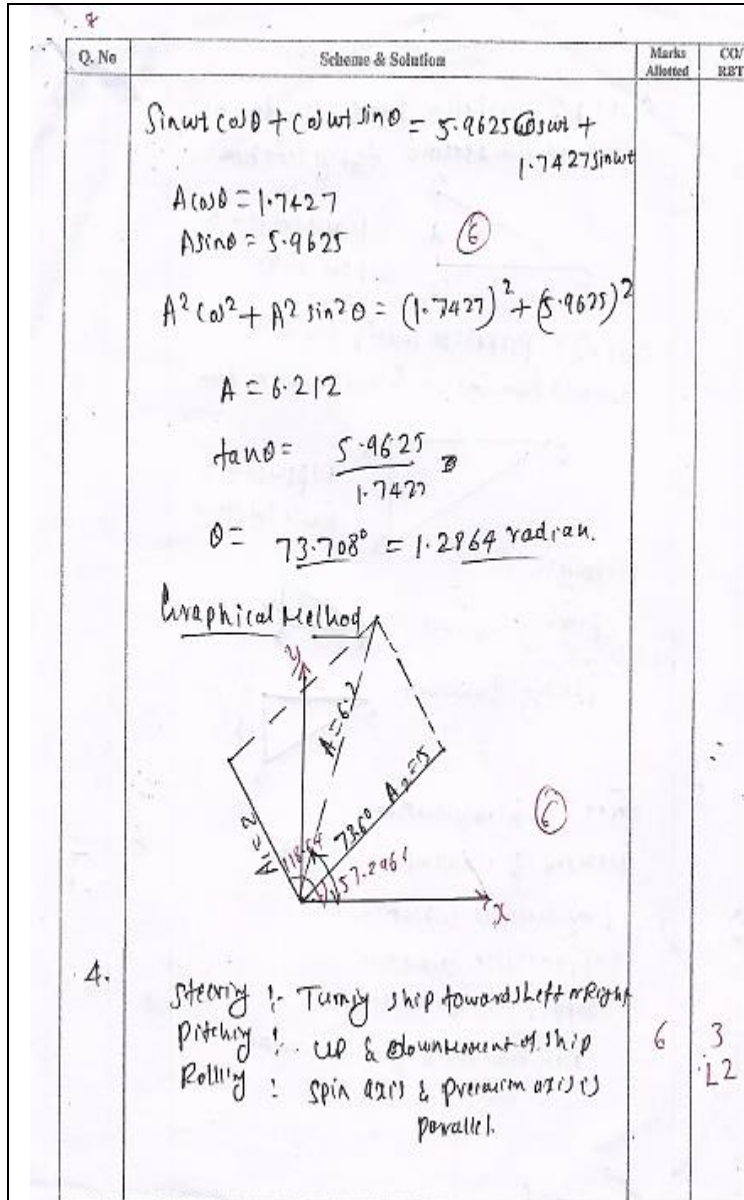 Q. No
Scheme & Solution
Marks Allotted
CO/ RBT
Sinωt cosθ + cosωt sinθ = 5.9625 Cosωt +
1.7427 sinωt
A cosθ = 1.7427
A sinθ = 5.9625
6
A² cos² + A² sin²θ = (1.7427)² + (5.9625)²
A = 6.212
tanθ = 5.9625
1.7427
θ = 73.708° = 1.2864 radian.
Graphical Method
y
A = 6.2
A₁ = 2
118.64
73.6°
A₂ = 5
57.296°
6
x
4.
Steering :- Turning ship towards Left or Right
Pitching :- up & down movement of ship
6
3
Rolling : spin axis & precession axis is
L2
parallel.